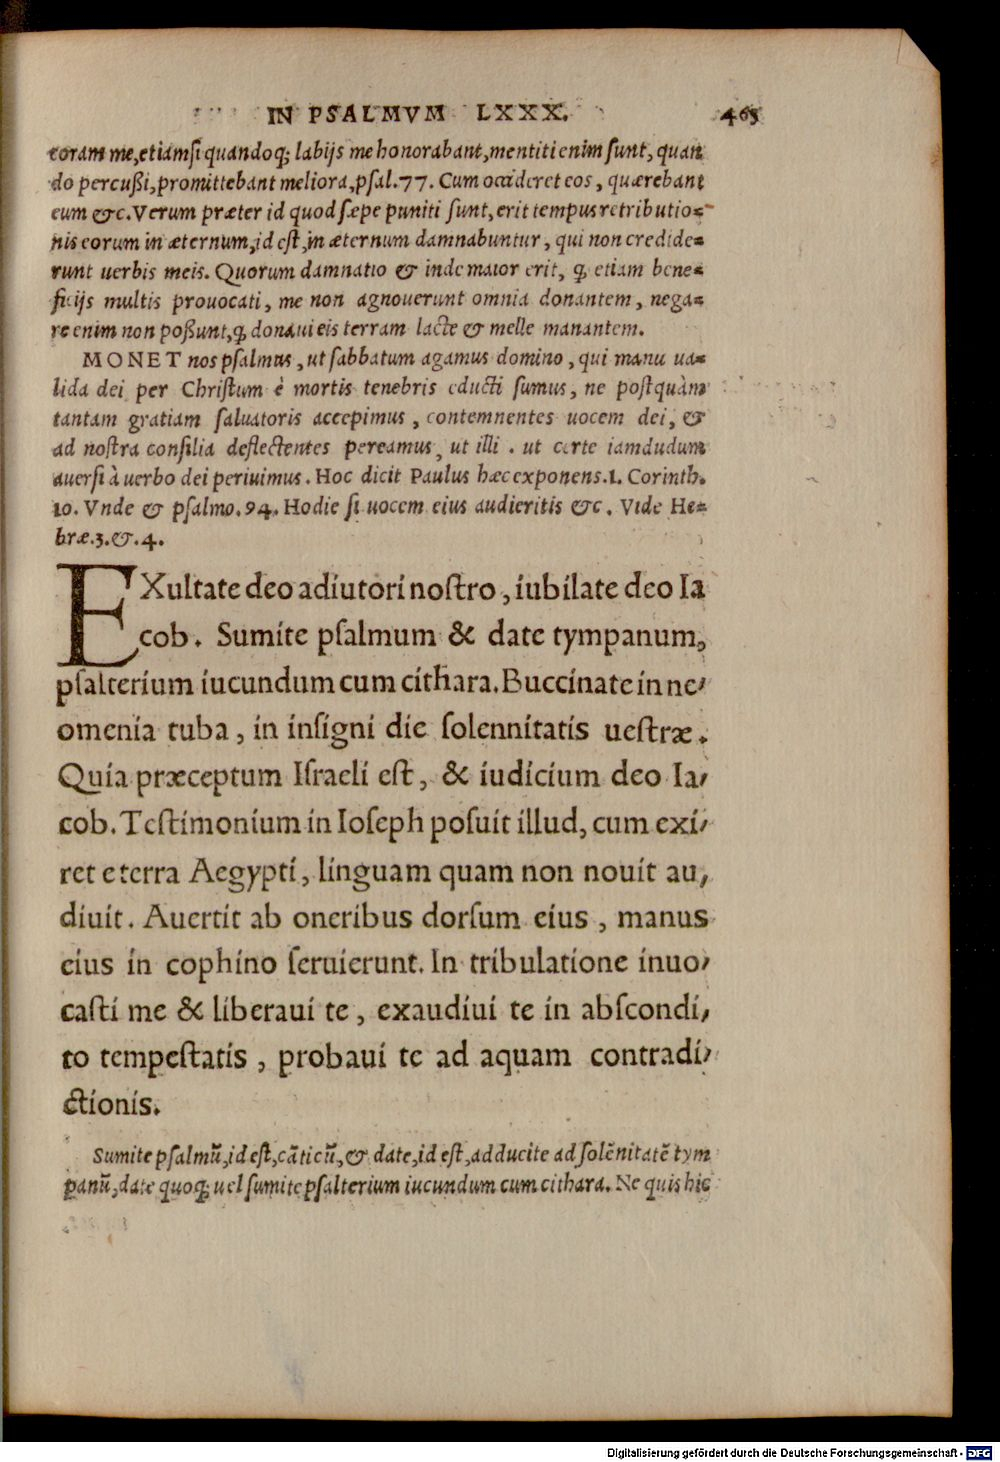 IN PSALMVM LXXX. 465
coram me, etiamsi quandoq; labijs me honorabant, mentiti enim sunt, quan
do percußi, promittebant meliora, psal.77. Cum occideret eos, quærebant
eum &c. Verum præter id quod sæpe puniti sunt, erit tempus retributio=
nis eorum in æternum, id est, in æternum damnabuntur, qui non credide=
runt uerbis meis. Quorum damnatio & inde maior erit, q, etiam bene=
ficijs multis prouocati, me non agnouerunt omnia donantem, nega=
re enim non poßunt, q, donaui eis terram lacte & melle manantem.
MONET nos psalmus, ut sabbatum agamus domino, qui manu ua=
lida dei per Christum è mortis tenebris educti sumus, ne postquàm
tantam gratiam saluatoris accepimus, contemnentes uocem dei, &
ad nostra consilia deflectentes pereamus, ut illi. ut certe iamdudum
auersi à uerbo dei periuimus. Hoc dicit Paulus hæc exponens. 1. Corinth.
10. Vnde & psalmo. 94. Hodie si uocem eius audieritis &c. Vide He=
bræ.3.&.4.
EXultate deo adiutori nostro, iubilate deo Ia
cob. Sumite psalmum & date tympanum,
psalterium iucundum cum cithara. Buccinate in ne/
omenia tuba, in insigni die solennitatis uestræ.
Quia præceptum Israeli est, & iudicium deo Ia/
cob. Testimonium in Ioseph posuit illud, cum exi/
ret e terra Aegypti, linguam quam non nouit au/
diuit. Auertit ab oneribus dorsum eius, manus
eius in cophino seruierunt. In tribulatione inuo/
casti me & liberaui te, exaudiui te in abscondi/
to tempestatis, probaui te ad aquam contradi/
ctionis.
Sumite psalmũ, id est, cãticũ, & date, id est, adducite ad solẽnitatẽ tym
panũ, date quoq; uel sumite psalterium iucundum cum cithara. Ne quis hic
Digitalisierung gefördert durch die Deutsche Forschungsgemeinschaft - DFG